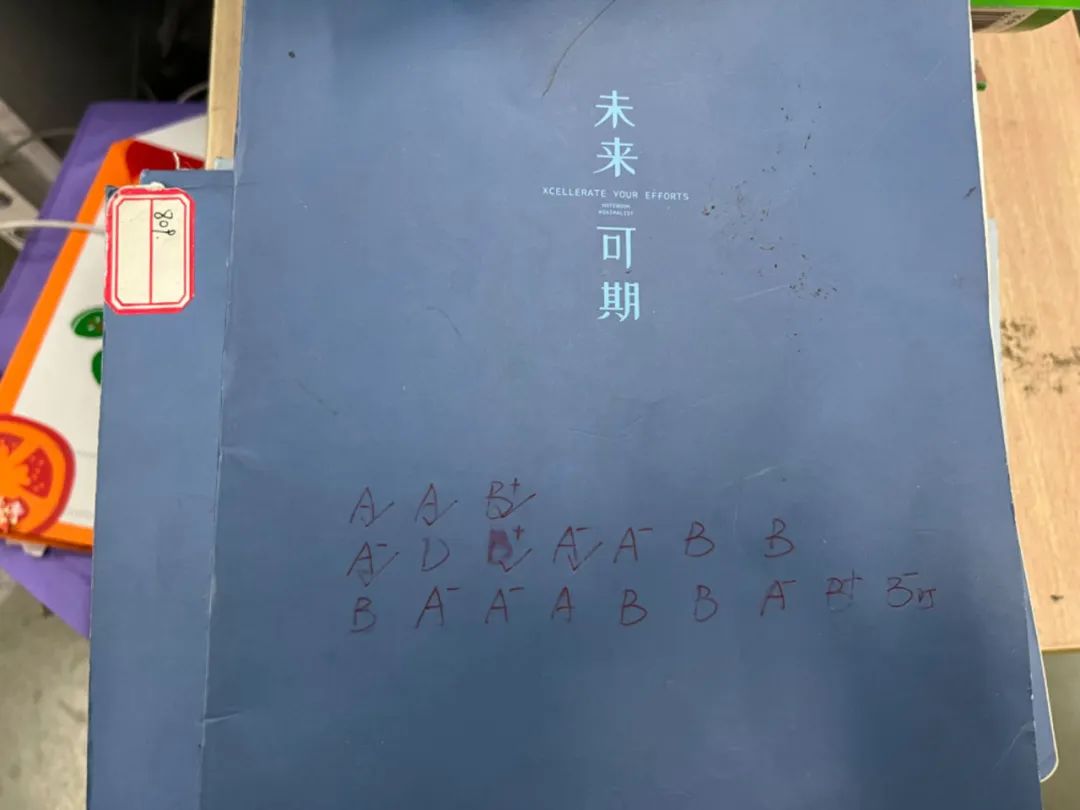 未来
XCELLERATE YOUR EFFORTS
NOTEBOOK
MINIMALIST
可期
809.
A A B⁺
A⁻ D B⁺ A⁻ A⁻ B B
B A⁻ A⁻ A B B A⁻ B⁺ B⁻